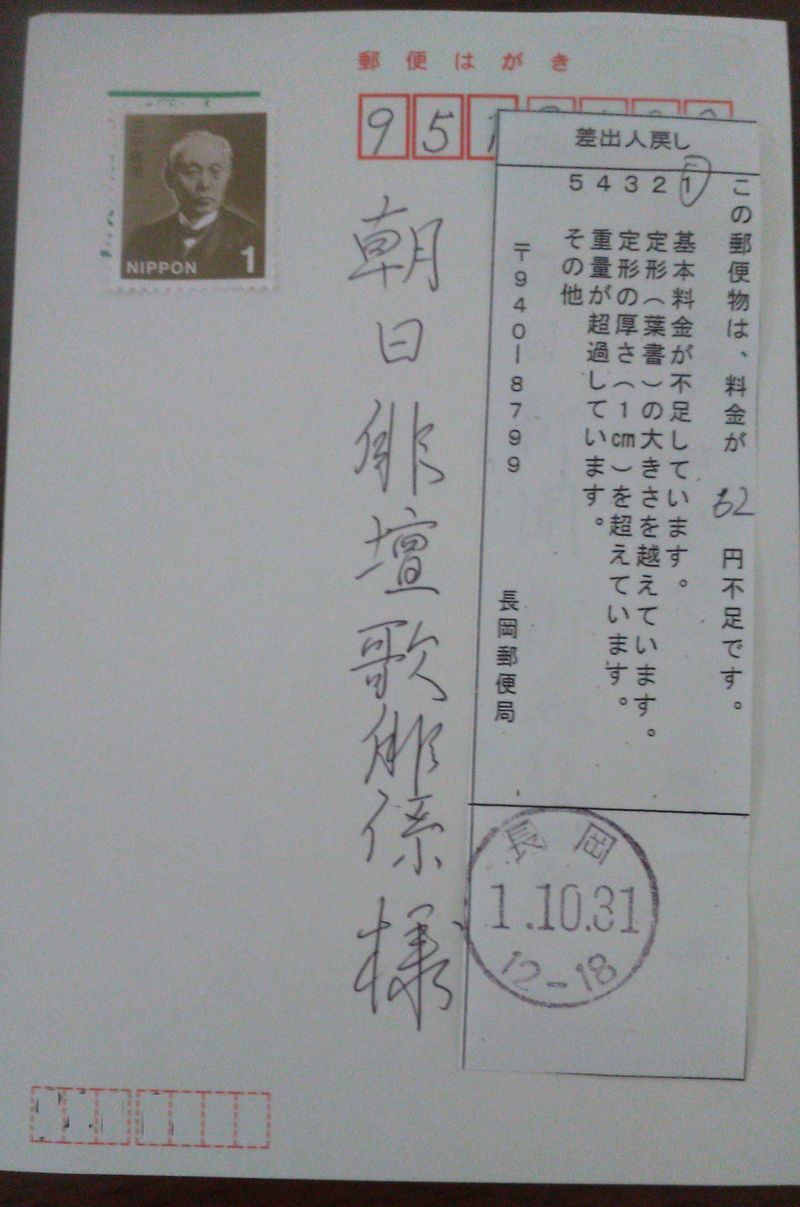 郵便はがき
951
NIPPON 1
朝日俳壇歌俳係様
差出人戻し
この郵便物は、料金が 62 円不足です。
1 基本料金が不足しています。
2 定形(葉書)の大きさを越えています。
3 定形の厚さ(1cm)を超えています。
4 重量が超過しています。
5 その他
〒940-8799
長岡郵便局
長岡
1.10.31
12-18